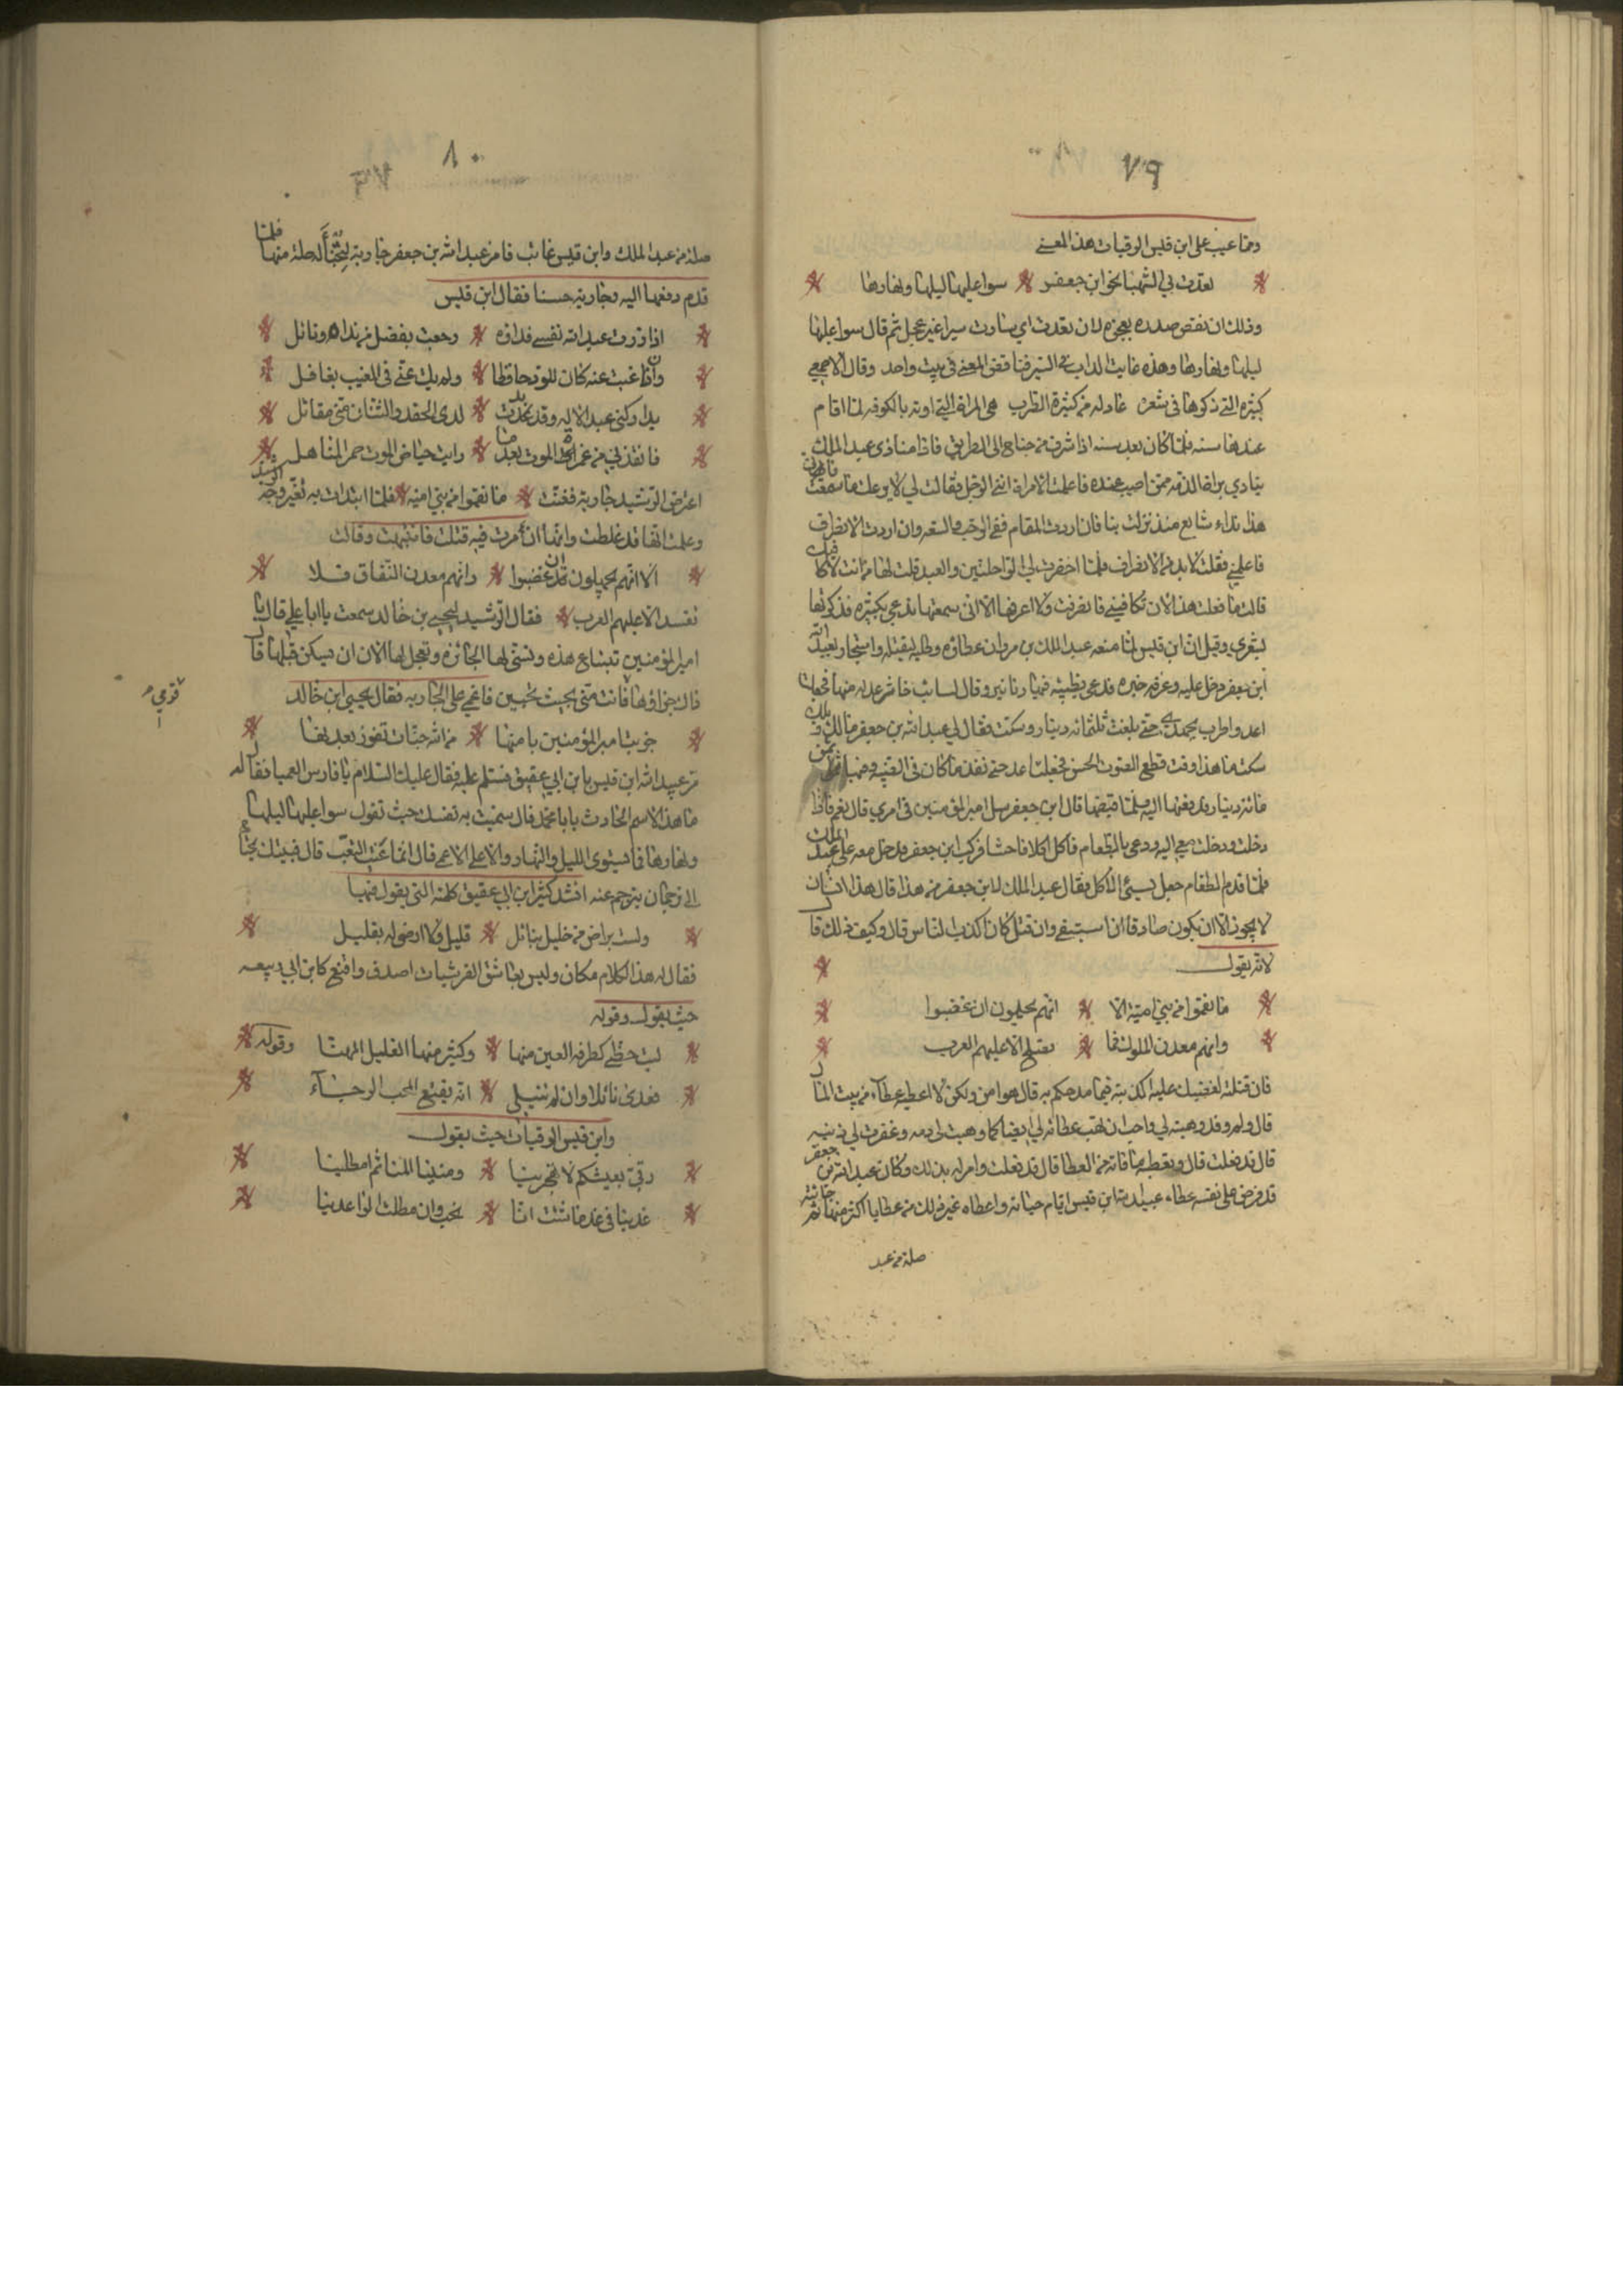 ٧٩
ومما عيب على ابن قيس الرقيات هذا المعنى
تعدت بي الشهبا نحو ابن جعفر سوا عليها ليلها ونهارها
وذلك ان نقض صدره بعجزه لان تعدت اي سارت سيرا غير عجل ثم قال سوا عليها
ليلها ونهارها وهذه غايت الداب في السير فناقض المعنى في بيت واحد وقال الاصمعي
كثيره التي ذكرها في شعره هي المراة التي اوته بالكوفه لما اقام
عندها سنه فلما كان بعد سنه اذا شرف من جناح الى الطريق فاذا منادى عبد الملك
ينادي ببراة الذمه ممن اصيب عنده فاعلمت الامراة انني الرحيل فقالت لي لا يروعك ما سمعت
هذا نداء شايع منذ نزلت بنا فان اردت المقام ففي الرحب والسعه وان اردت الانصراف
فاعلمني فقلت لا بد من الانصراف فلما احضرت لي الراحلتين والعبد قلت لها من انت
قالت ما فعلت هذا لان تكافيني فانصرفت ولا اعرفها الا اني سمعتها تدعى بكثيره فذكرتها
بشعري وقيل ان ابن قيس لما منعه عبد الملك بن مروان عطاؤه وطلبه ليقتله واستجار بعبد الله
ابن جعفر دخل عليه وعرفه خبره فدعى بظبيه فيها دنانير وقال لسائب خاثر عد له منها فجعلت
اعد واطرب حتى بلغت ثلثمائه دينار وسكت فقال لي عبد الله بن جعفر مالك
سكت ما هذا وقت قطع الصوت الحسن فجعلت اعد حتى نفذ ما كان في الظبيه وفيها
مائه دينار فدفعتها اليه فلما قبضها قال ابن جعفر سل امير المؤمنين في امري قال نعم فاذا
دخلت ودخلت معي اليه ودعى بالطعام فاكل اكلا فاحشا فركب ابن جعفر فدخل معه على عبد الملك
فلما قدم الطعام جعل يسئ الاكل فقال عبد الملك لابن جعفر من هذا قال هذا انسان
لا يجوز الا ان يكون صادقا ان استبقي وان قتل كان اكذب الناس قال وكيف ذلك قال
لانه يقول
ما نقموا من بني امية الا انهم يحلمون ان غضبوا
وانهم معدن الملوك فما تصلح الا عليهم العرب
فان قتلته لغضبك عليه اكذبته فيما مدحكم به قال هو امن ولكن لا اعطيه عطاء من بيت المال
قال ولم وقد وهبته لي واحب ان تهب عطائه لي ايضا كما وهبت لي دمه وغفرت لي ذنبه
قال قد فعلت قال وتعطيه ما فاته من العطا قال قد فعلت وامر له بذلك وكان عبد الله بن جعفر
قد فرض على نفسه عطاء عبيد الله ابن قيس ايام حياته واعطاه غير ذلك من عطايا اكثر منها ثم جائته
صلة من عبد
٨٠
صلة من عبد الملك وابن قيس غائب فامر عبد الله بن جعفر جاريته لتخبأ له صلته منها فلما
قدم دفعها اليه وجارية حسنا فقال ابن قيس
اذا زرت عبد الله نفسي فداؤه رجعت بفضل من نداه ونائل
وان غبت عنه كان للود حافظا ولم يك عني في المغيب بغافل
تداركني عبد الاله وقد بدت لدى الحقد والشنان مني مقاتل
فانقذني من غمرة الموت بعدما رايت حياض الموت جم المناهل
اعترض الرشيد جارية فغنت ما نقموا من بني اميه فلما ابتدات به تغير وجه الرشيد
وعلمت انها قد غلطت وانها ان مرت فيه قتلت فانتبهت وقالت
الا انهم يجهلون ان غضبوا وانهم معدن النفاق فلا
تفسد الا عليهم العرب فقال الرشيد ليحيى بن خالد سمعت يا ابا علي قال يا
امير المؤمنين تبتاع هذه وتسنى لها الجائزه وتعجل لها الاذن ان يسكن قلبها قال
ذاك جزاؤها فانت مني بحيث تحبين فاغمي على الجاريه فقال يحيى ابن خالد
جزيت امير المؤمنين بامنها من الله جنات تفوز بعدنها
مر عبيد الله ابن قيس بابن ابي عتيق فسلم عليه فقال عليك السلام يا فارس العميا فقال له
ما هذا الاسم الحادث يا ابا محمد قال سميت به نفسك حيث تقول سوا عليها ليلها
ونهارها فما يستوى الليل والنهار والا على الاعمى قال انما عنيت التعب قال فبيتك يحتاج
الى ترجمان يترجم عنه انشد كثير ابن ابي عتيق كلمته التي يقول فيها
ولست براض من خليل بنائل قليل ولا ارضى له بقليل
فقال له هذا الكلام مكان وليس بعاشق القرشيات اصدق واقنع كابن ابي ربيعه
حيث يقول وقوله
ليت حظي كطرفه العين منها وكثير منها القليل المهنا وقوله
فعدى نائلا وان لم تنيلى انه يقنع المحب الرجاء
وابن قيس الرقيات حيث يقول
رقى بعيشكم لا تهجرينا ومنينا المنا ثم امطلينا
عدينا في غد ما شئت انا نحب وان مطلت الواعدينا